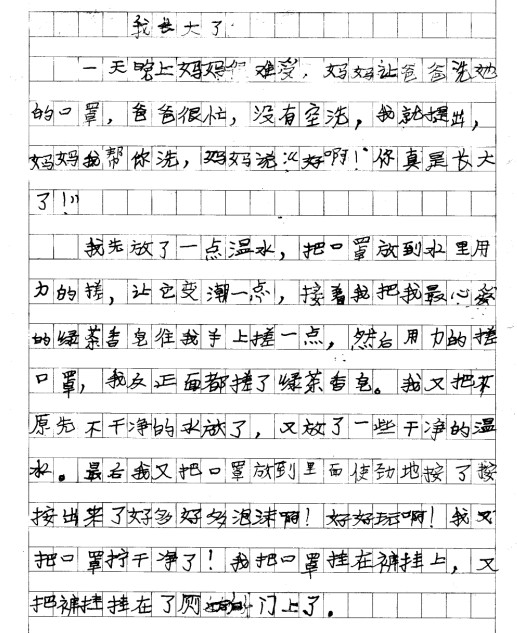 我长大了
一天晚上妈妈很难受，妈妈让爸爸洗她
的口罩，爸爸很忙，没有空洗，我就提出，
妈妈我帮你洗，妈妈说：“好啊！你真是长大
了！”
我先放了一点温水，把口罩放到水里用
力的搓，让它变潮一点，接着我把我最心爱
的绿茶香皂往我手上搓一点，然后用力的搓
口罩，我反正面都搓了绿茶香皂。我又把
原先不干净的水放了，又放了一些干净的温
水。最后我又把口罩放到里面使劲地按了按
按出来了好多好多泡沫啊！好好玩啊！我又
把口罩拧干净了！我把口罩挂在裤挂上，又
把裤挂挂在了厕门上了。